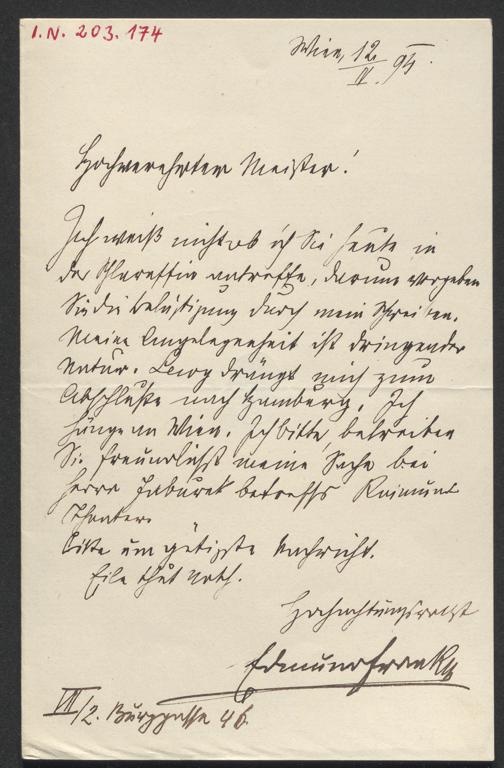 I.N. 203.174
Wien, 12/IV. 95.
Hochverehrter Meister!
Ich weiß nicht ob ich Sie heute in
der Schlaraffia antreffe, darum vergeben
Sie die Belästigung durch mein Schreiben.
Meine Angelegenheit ist dringender
Natur. drängt mich zum
Abschluße nach Hamburg. Ich
hänge an Wien. Ich bitte, betreiben
Sie freundlichst meine Sache bei
Herrn betreffs Raimund
Theater.
Bitte um gütigste Nachricht.
Eile thut noth.
Hochachtungsvollst
Edmund Frank
VII/2. Burggasse 46.